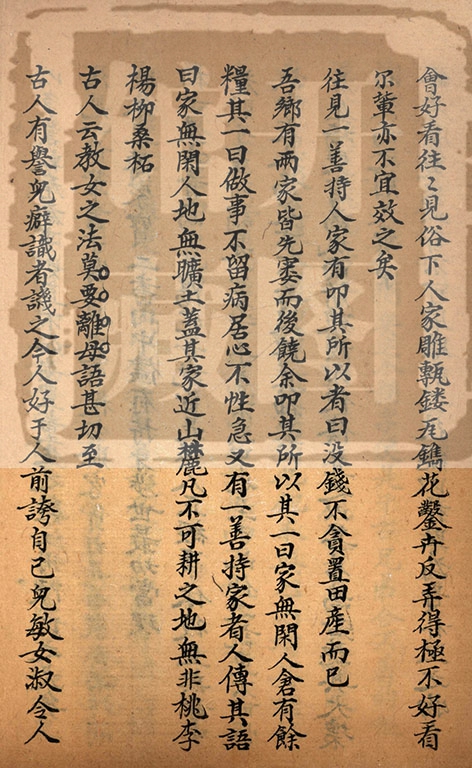 會好看往〻見俗下人家雕甎鏤瓦鐫花鑿卉反弄得極不好看
尔輩亦不宜效之矣
往見一善持人家有叩其所以者曰没錢不貪置田產而已
吾鄉有兩家皆先窭而後饒余叩其所以其一曰家無閑人倉有餘
糧其一曰做事不留病居心不性急又有一善持家者人傳其語
曰家無閑人地無曠土蓋其家近山麓凡不可耕之地無非桃李
楊柳桑柘
古人云教女之法莫要離母語甚切至
古人有譽兒癖識者譏之今人好于人前誇自己兒敏女淑令人